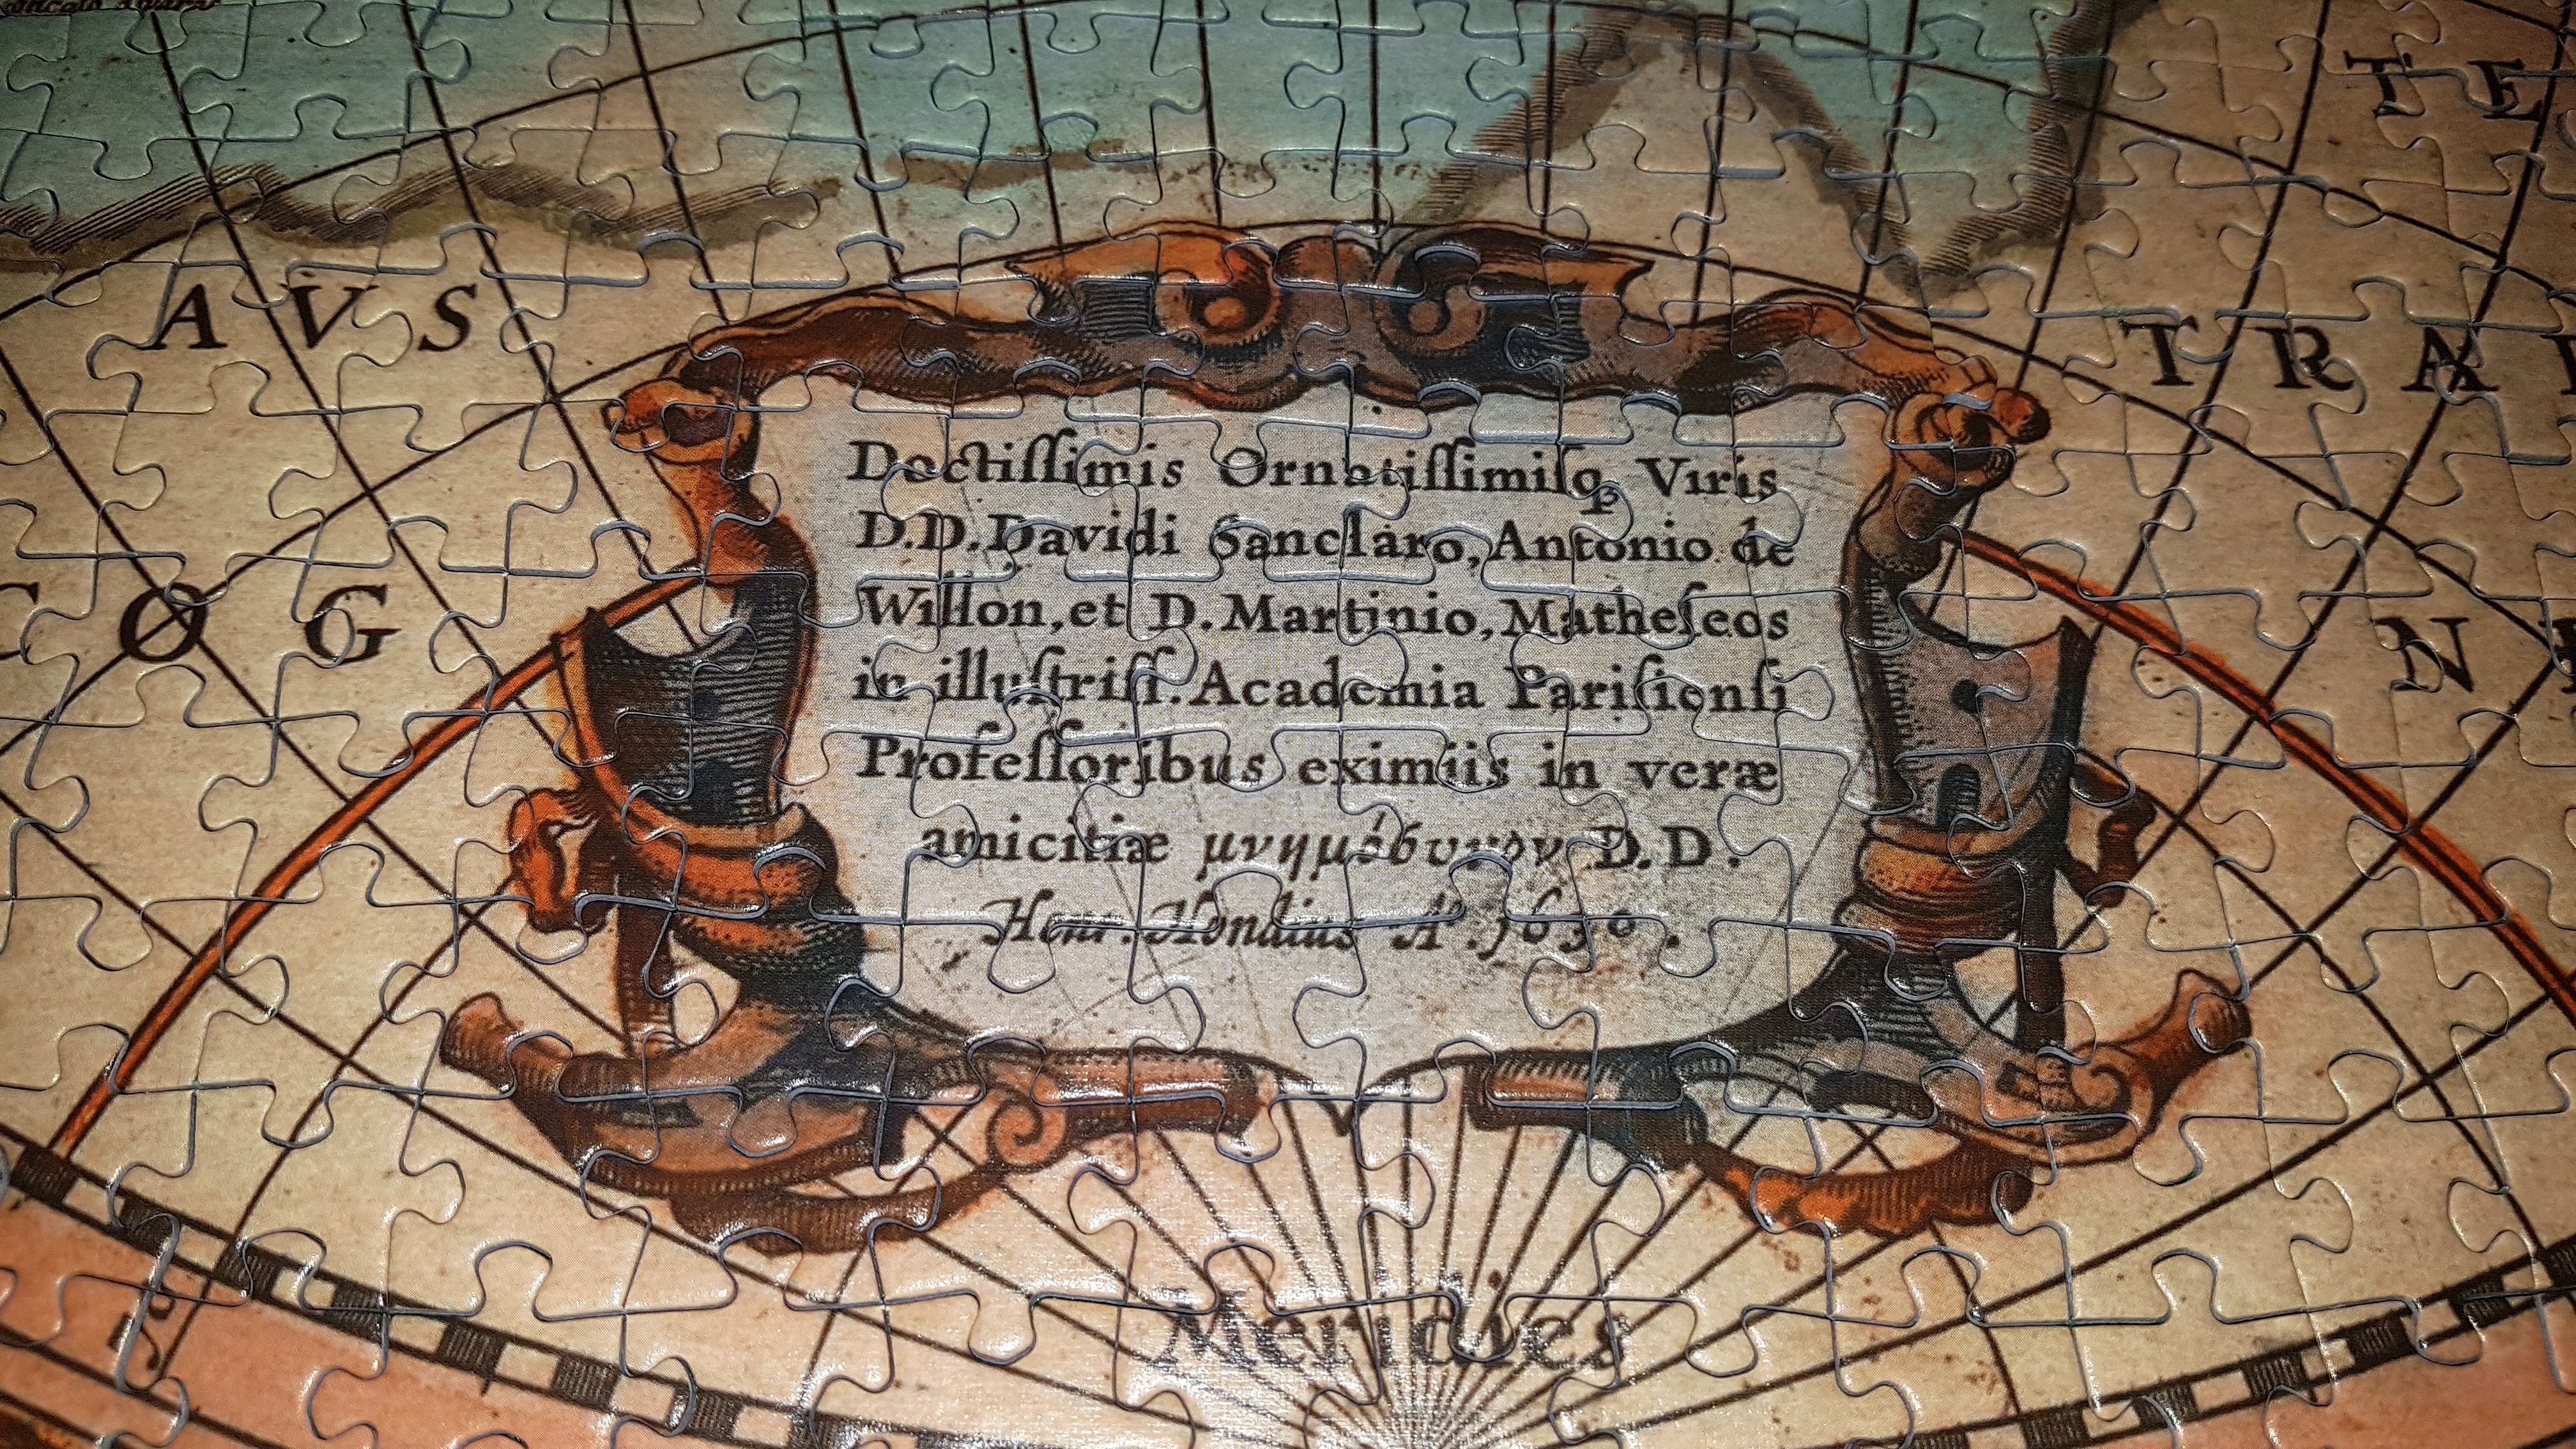 TE
AVS
TRA
OG
N
Doctiſſimis Ornatiſſimiſq Viris
D.D. Davidi Sanclaro, Antonio de
Willon, et D. Martinio, Matheſeos
in illuſtriſſ. Academia Pariſienſi
Profeſſoribus eximiis in veræ
amicitiæ μνημόσυνον D.D.
Henr. Hondius Aº. 1630.
Meridies